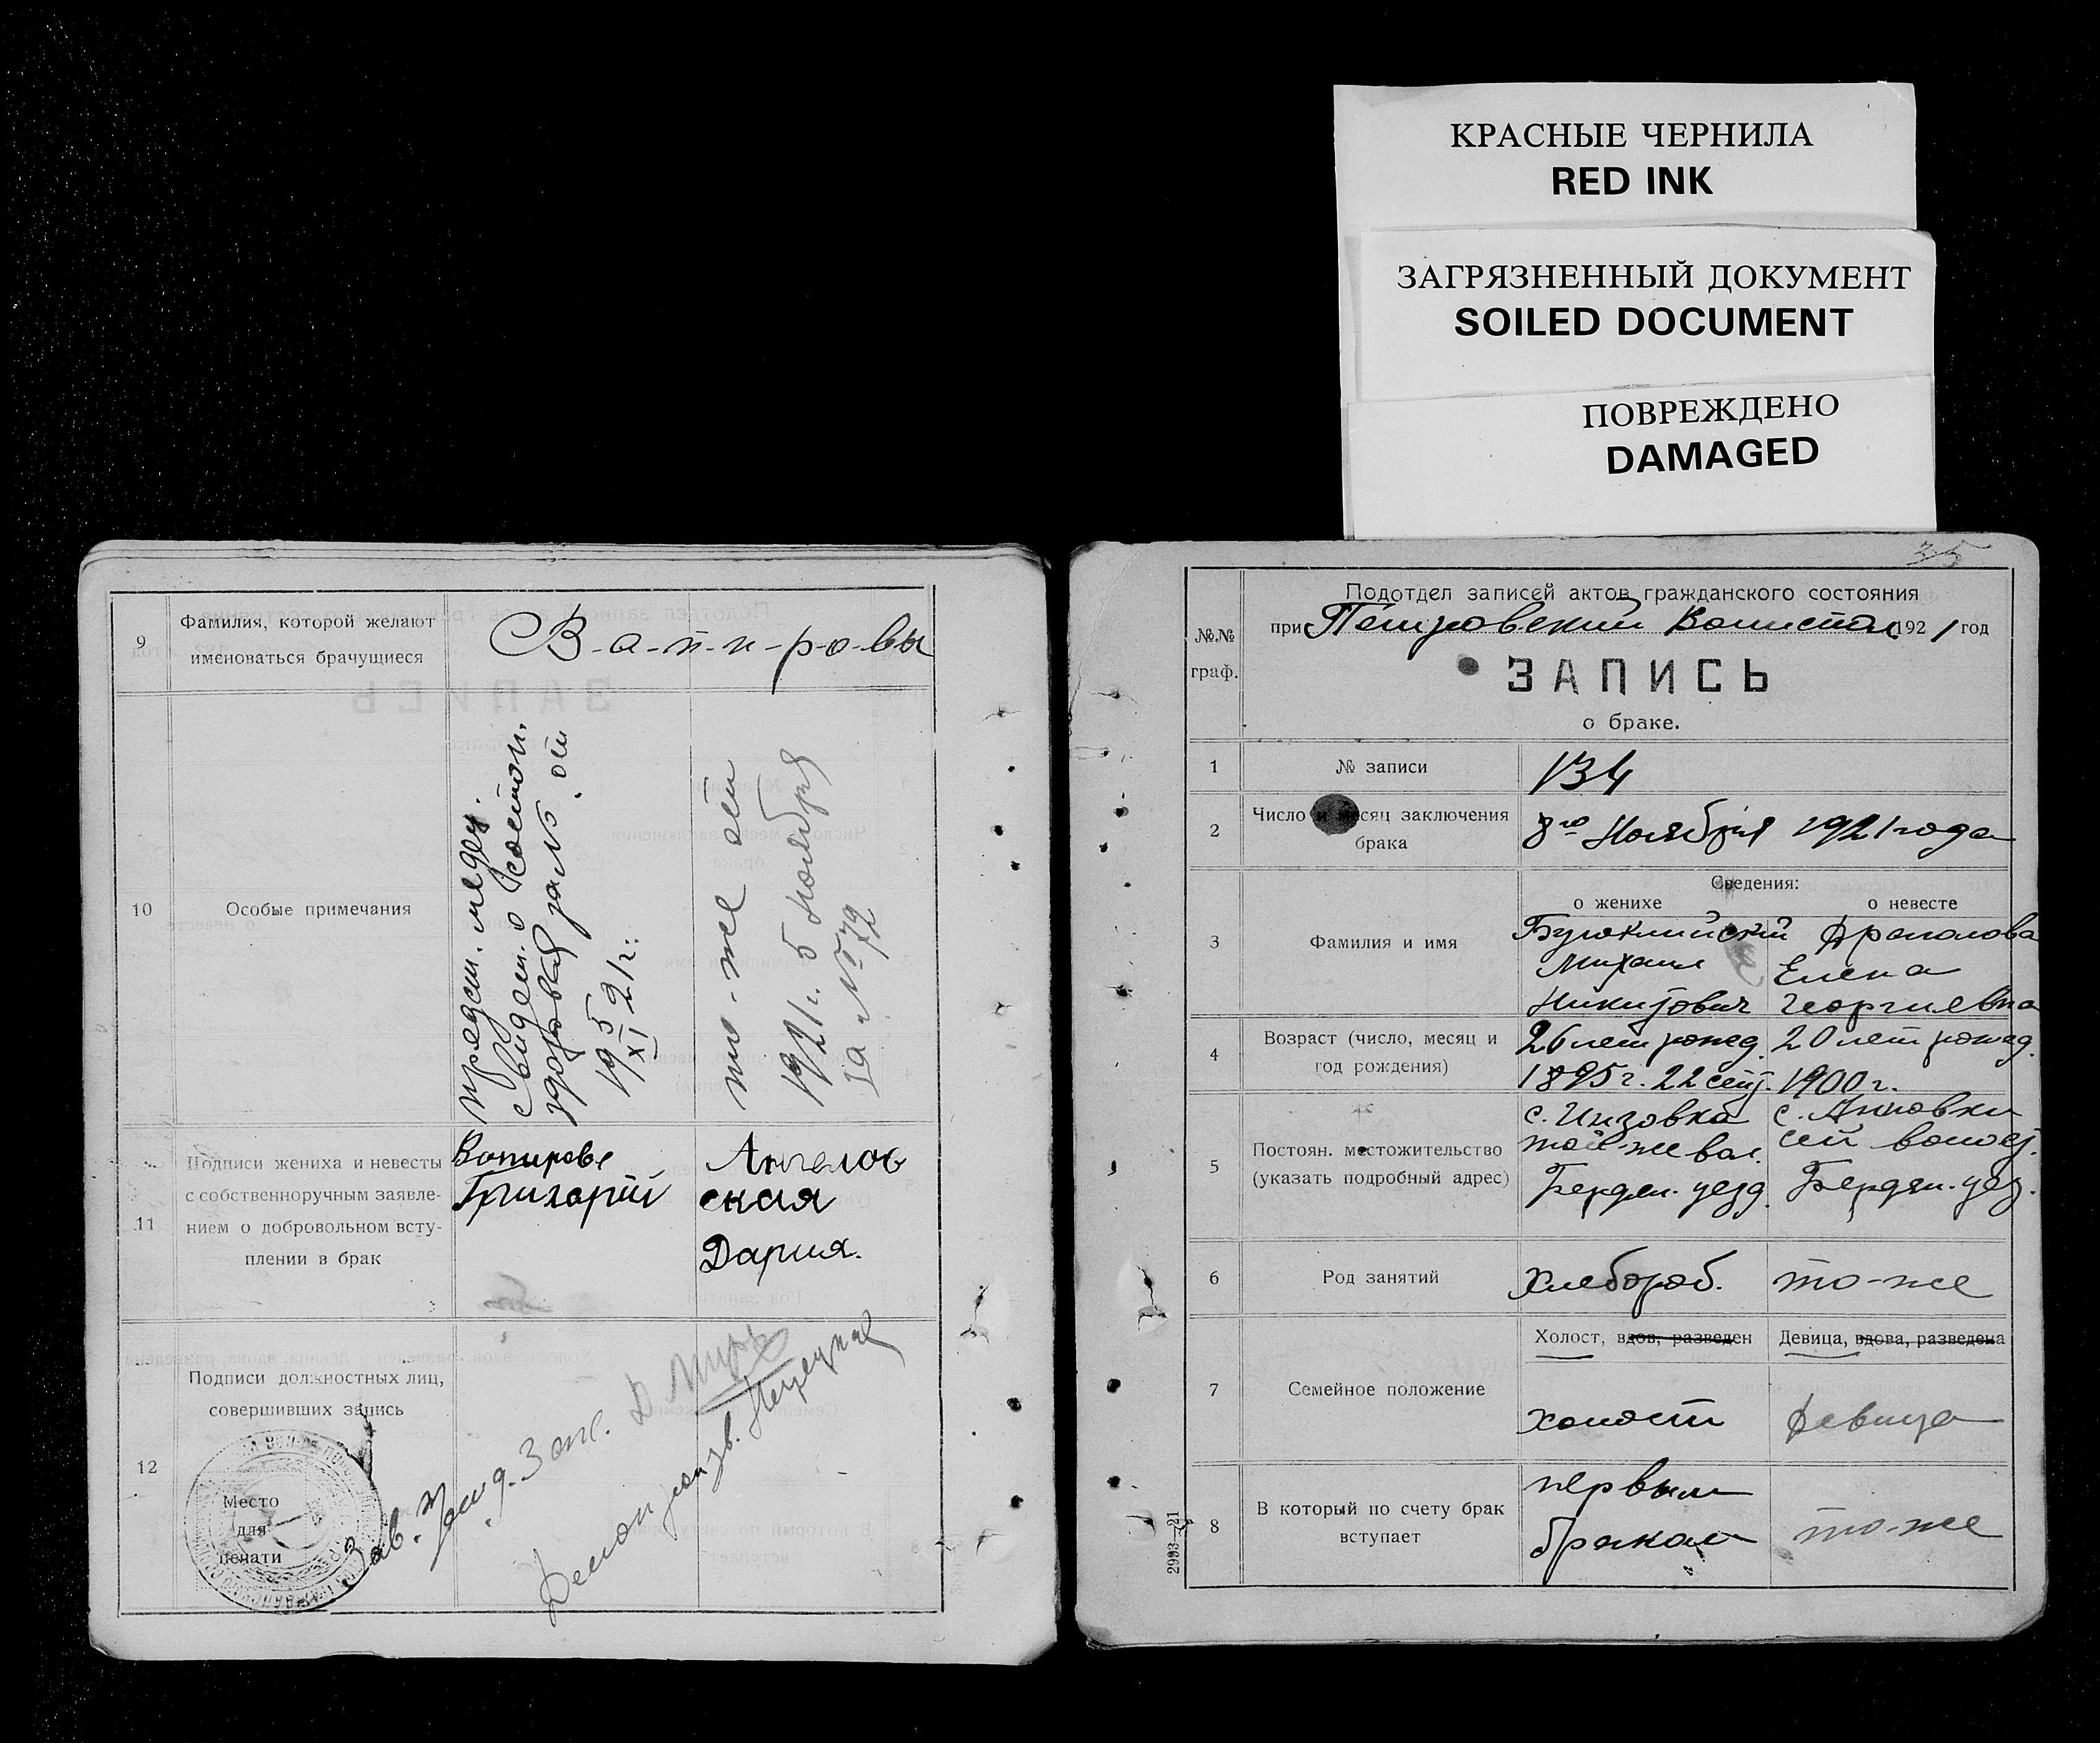 КРАСНЫЕ ЧЕРНИЛА
RED INK
ЗАГРЯЗНЕННЫЙ ДОКУМЕНТ
SOILED DOCUMENT
ПОВРЕЖДЕНО
DAMAGED
9
Фамилия, которой желают
именоваться брачущиеся
В-а-п-и-р-о-вы
10
Особые примечания
предст. медец.
свидет. о состоян.
здоровья от
19 5/XI 21г.
то-же от
1921г. 5 ноября
за № 72
11
Подписи жениха и невесты
с собственноручным заявле-
нием о добровольном всту-
плении в брак
Григорий
Ангелов
ская
Дария.
12
Подписи должностных лиц,
совершивших запись
Место
для
печати
Зав.
35
№№
граф.
Подотдел записей актов гражданского состояния
при Петровский Волисполк 1921 год
ЗАПИСЬ
о браке.
1
№ записи
134
2
Число и месяц заключения
брака
8го Ноября 1921 года
Сведения:
о женихе
о невесте
3
Фамилия и имя
Михаил
Никитович
Елена
Георгиевна
4
Возраст (число, месяц и
год рождения)
26 лет рожд. 1895г. 22 сент.
20 лет рожд. 1900г.
5
Постоян. местожительство
(указать подробный адрес)
с. Инзовка
той-же вол.
Бердян. уезд.
с. Анновки
сей волост.
Бердян. уез.
6
Род занятий
хлебороб.
то-же
7
Семейное положение
Холост, вдов, разведен
Девица, вдова, разведена
холост
девица
8
В который по счету брак
вступает
первым
браком
то-же
2993—21